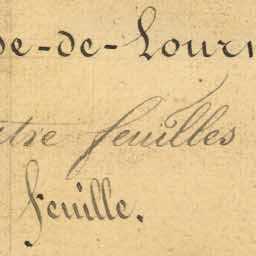 de-de-Lour
tre feuilles
feuille.